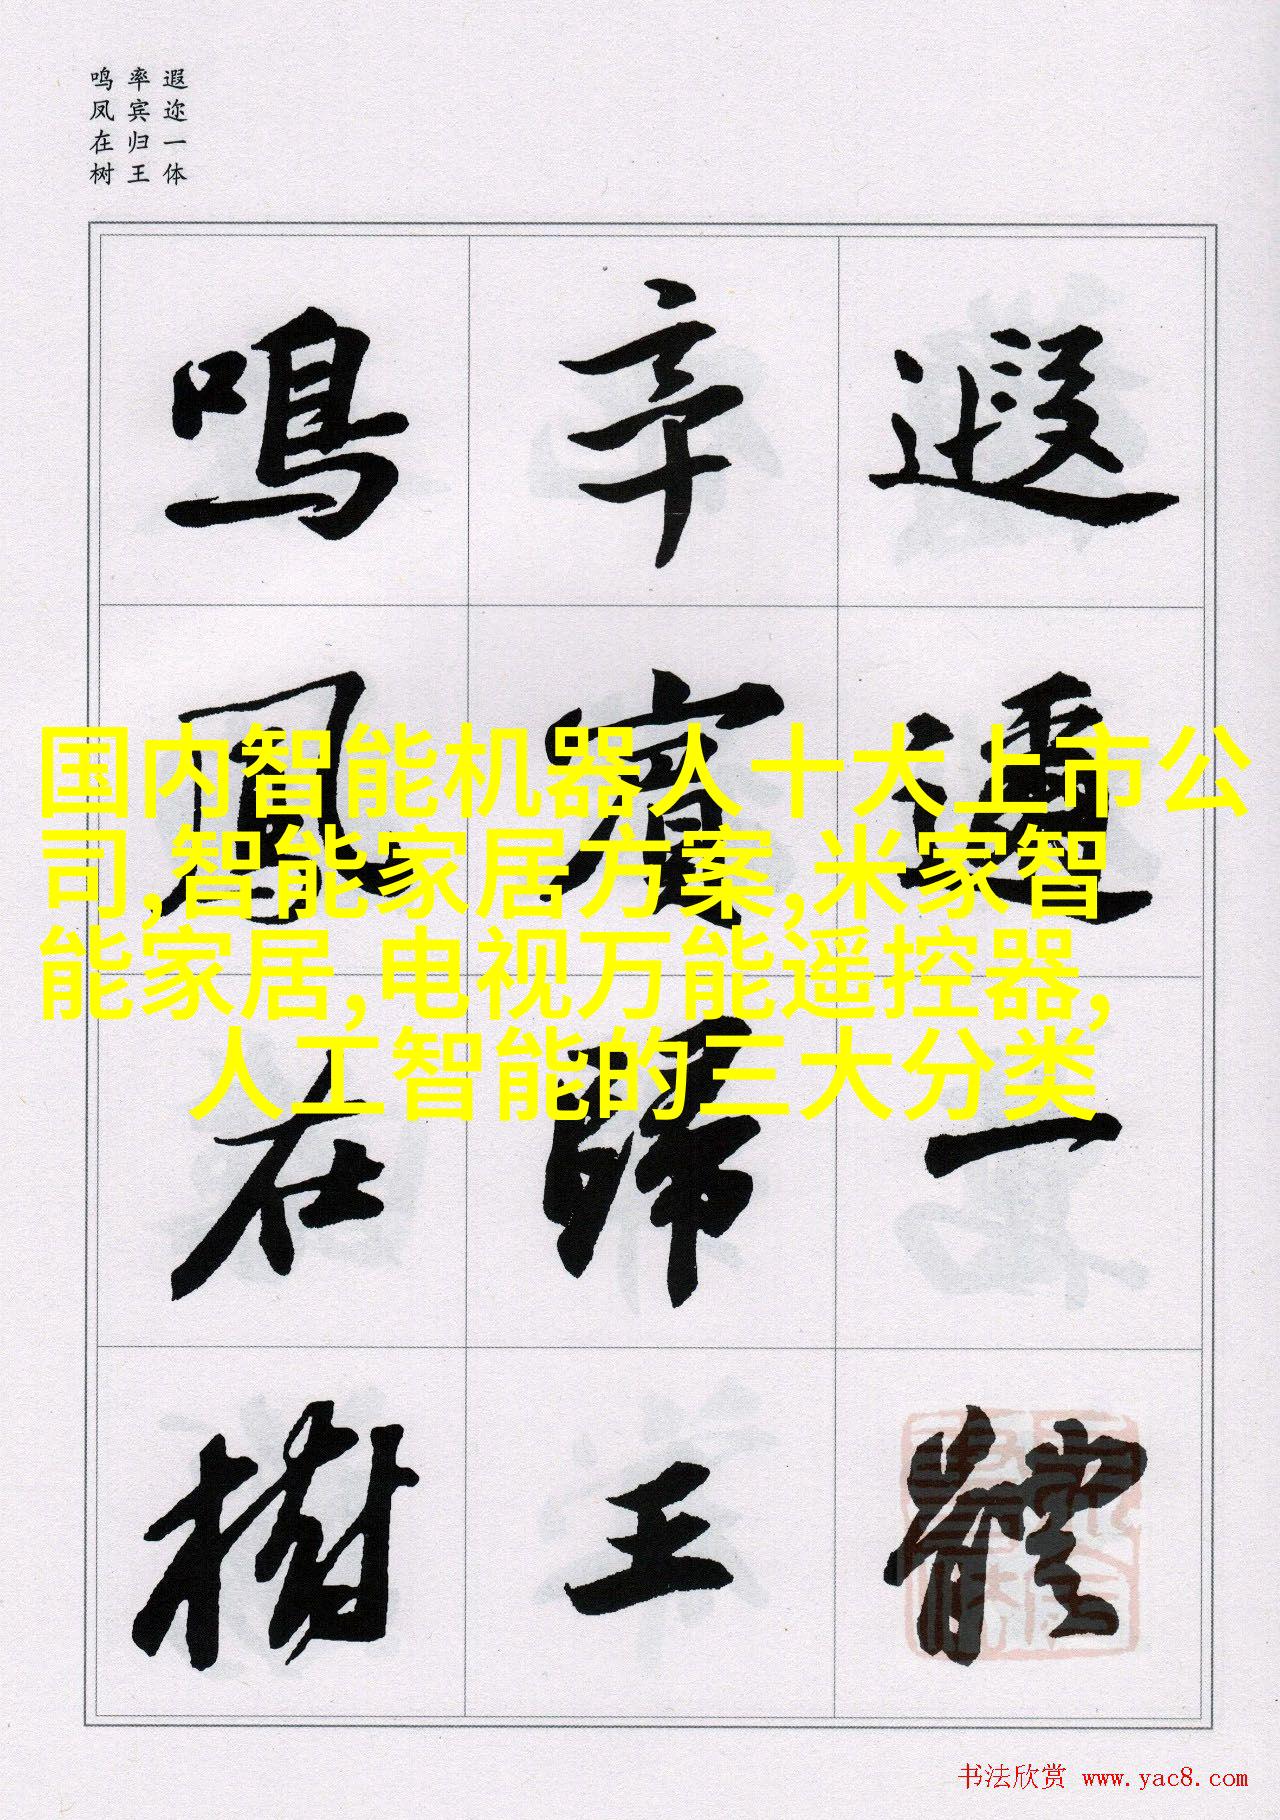 遐迩一体
率宾归王
鸣凤在树
遐迩一體
率賓歸王
鳴鳳在樹
国内智能机器人十大上市公
司,智能家居方案,米家智
能家居,电视万能遥控器,
人工智能的三大分类
书法欣赏 www.yac8.com